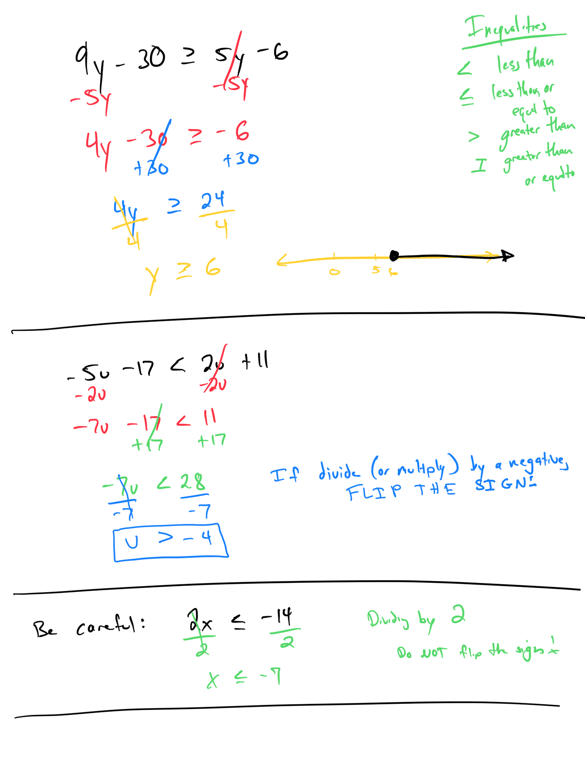 Inequalities
< less than
≤ less than or
equal to
> greater than
I greater than
or equal to
9y - 30 ≥ 5y - 6
-5y -5y
4y - 30 ≥ -6
+30 +30
4y ≥ 24
4 4
y ≥ 6
0 5 6
-5u -17 < 2u +11
-2u -2u
-7u -17 < 11
+17 +17
-7u < 28
-7 -7
u > -4
If divide (or multiply) by a negative,
FLIP THE SIGN!
Be careful: 2x ≤ -14
2 2
x ≤ -7
Dividing by 2
Do NOT flip the signs!